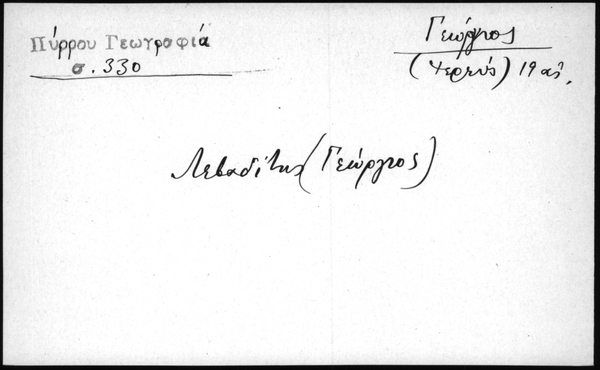 Πύρρου Γεωγραφιά
σ. 330
Γεώργιος
(ιερεύς) 19 αἰ.
Λεβαδίτης (Γεώργιος)